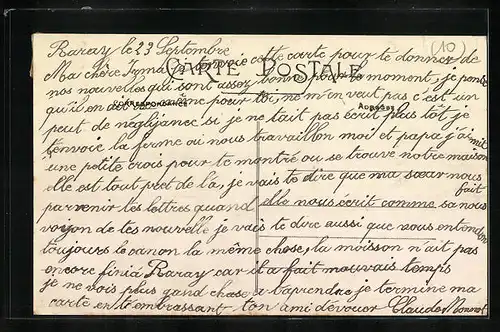 (10)
Raray le 23 Septembre
Ma chère Irma je t'envoie cette carte pour te donner de
CARTE POSTALE
nos nouvelles qui sont assez bonne pour le moment, je pense
qu'il en est de même pour toi, ne m'en veut pas c'est un
CORRESPONDANCE
ADRESSE
peut de néglijance si je ne tait pas écrit plus tôt, je
t'envoie la ferme ou nous travaillon moi et papa j'ai mit
une petite crois pour te montré ou se trouve notre maison
elle est tout pret de là, je vais te dire que ma sœur nous fait
parvenir tes lettres quand elle nous écrit comme sa nous
voyon de tes nouvelle je vais te dire aussi que nous entendon
toujours le canon la même chose, la moisson n'ait pas
encore finiá Raray car il a fait mauvais temps
je ne vois plus gand chose a taprendre je termine ma
carte en t'embrassant ton ami dévouer Claude